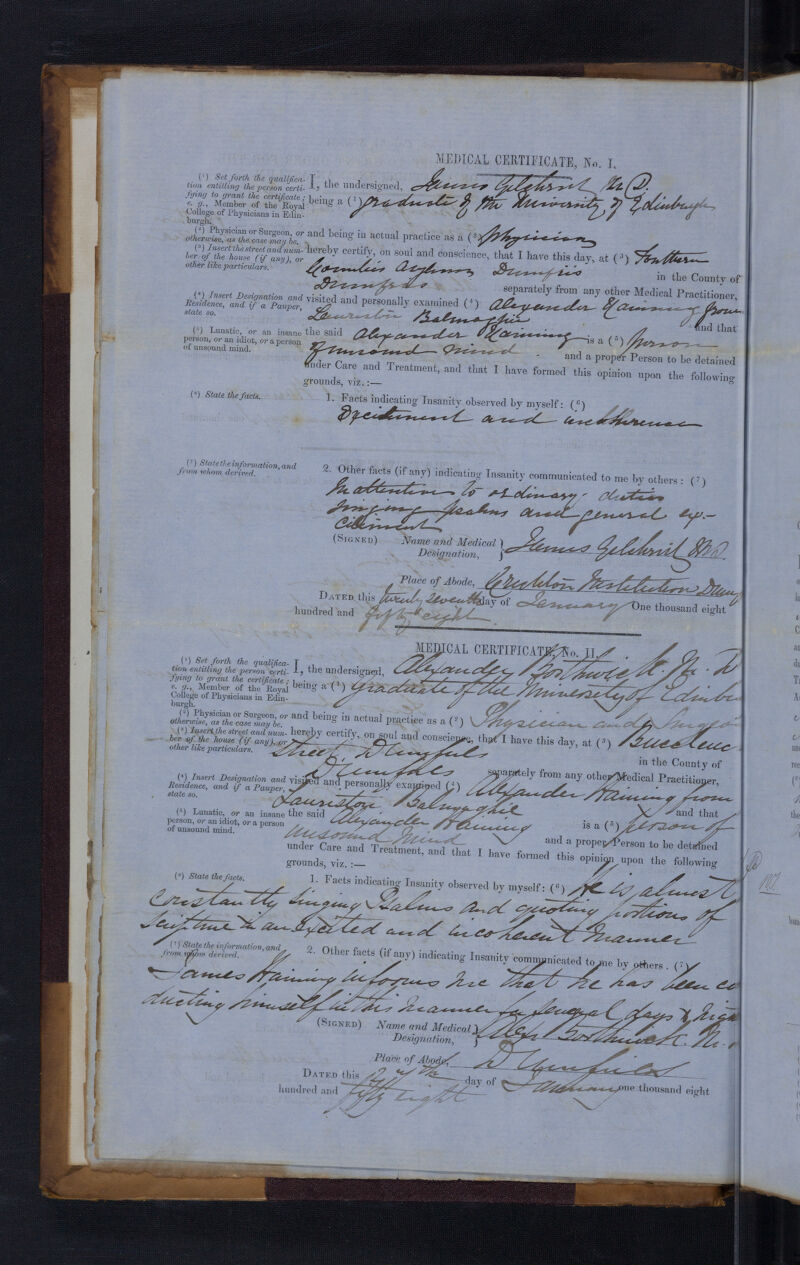 MEDICAL CERTIFICATE, No. I.
(1) Set forth the qualifica-
tion entitling the person certi-
fying to grant the certificate;
e. g., Member of the Royal
College of Physicians in Edin-
burgh.
I, the undersigned, James Gilchrist M.D.
being a (1) graduate of the University of Edinburgh
(2) Physician or Surgeon, or
otherwise, as the case may be.
and being in actual practice as a (2) Physician
(3) Insert the street and num-
ber of the house (if any), or
other like particulars.
hereby certify, on soul and conscience, that I have this day, at (3) Southern
Counties Asylum Dumfries in the County of
Dumfries separately from any other Medical Practitioner,
(4) Insert Designation and
Residence, and if a Pauper,
state so.
visited and personally examined (4) Alexander Haining from
Lauriston Balmaghie and that
(5) Lunatic, or an insane
person, or an idiot, or a person
of unsound mind.
the said Alexander Haining is a (5) Person
of unsound mind and a proper Person to be detained
under Care and Treatment, and that I have formed this opinion upon the following
grounds, viz.:—
(6) State the facts.
1. Facts indicating Insanity observed by myself: (6)
Excitement and incoherence
(7) State the information, and
from whom derived.
2. Other facts (if any) indicating Insanity communicated to me by others: (7)
Inattention to ordinary duties
singing psalms and general ex-
citement
(SIGNED) Name and Medical
Designation, James Gilchrist M.D.
Place of Abode, Crichton Institution Dumf
DATED this twenty seventh day of January One thousand eight
hundred and fifty eight
MEDICAL CERTIFICATE, No. II.
(1) Set forth the qualifica-
tion entitling the person certi-
fying to grant the certificate;
e. g., Member of the Royal
College of Physicians in Edin-
burgh.
I, the undersigned, Alexander Borthwick. M. D
being a (1) graduate of the University of Edinbu
(2) Physician or Surgeon, or
otherwise, as the case may be.
and being in actual practice as a (2) Physician and
(3) Insert the street and num-
ber of the house (if any), or
other like particulars.
hereby certify, on soul and conscience, that I have this day, at (3) Buccleuc
Street, Dumfries in the County of
Dumfries separately from any other Medical Practitioner,
(4) Insert Designation and
Residence, and if a Pauper,
state so.
visited and personally examined (4) Alexander Haining from
Lauriston Balmaghie and that
(5) Lunatic, or an insane
person, or an idiot, or a person
of unsound mind.
the said Alexander Haining is a (5) person of
unsound mind and a proper Person to be detained
under Care and Treatment, and that I have formed this opinion upon the following
grounds, viz.:—
(6) State the facts.
1. Facts indicating Insanity observed by myself: (6) He is almost
constantly singing Psalms and quoting portions of
Scripture in an excited and incoherent manner
(7) State the information, and
from whom derived.
2. Other facts (if any) indicating Insanity communicated to me by others. (7)
James Haining informs me that he has been co
ducting himself in this manner for several days & nigh
(SIGNED) Name and Medical
Designation, Alexr Borthwick. M.
Place of Abode, Dumfries
DATED this 27th day of January one thousand eight
hundred and fifty eight